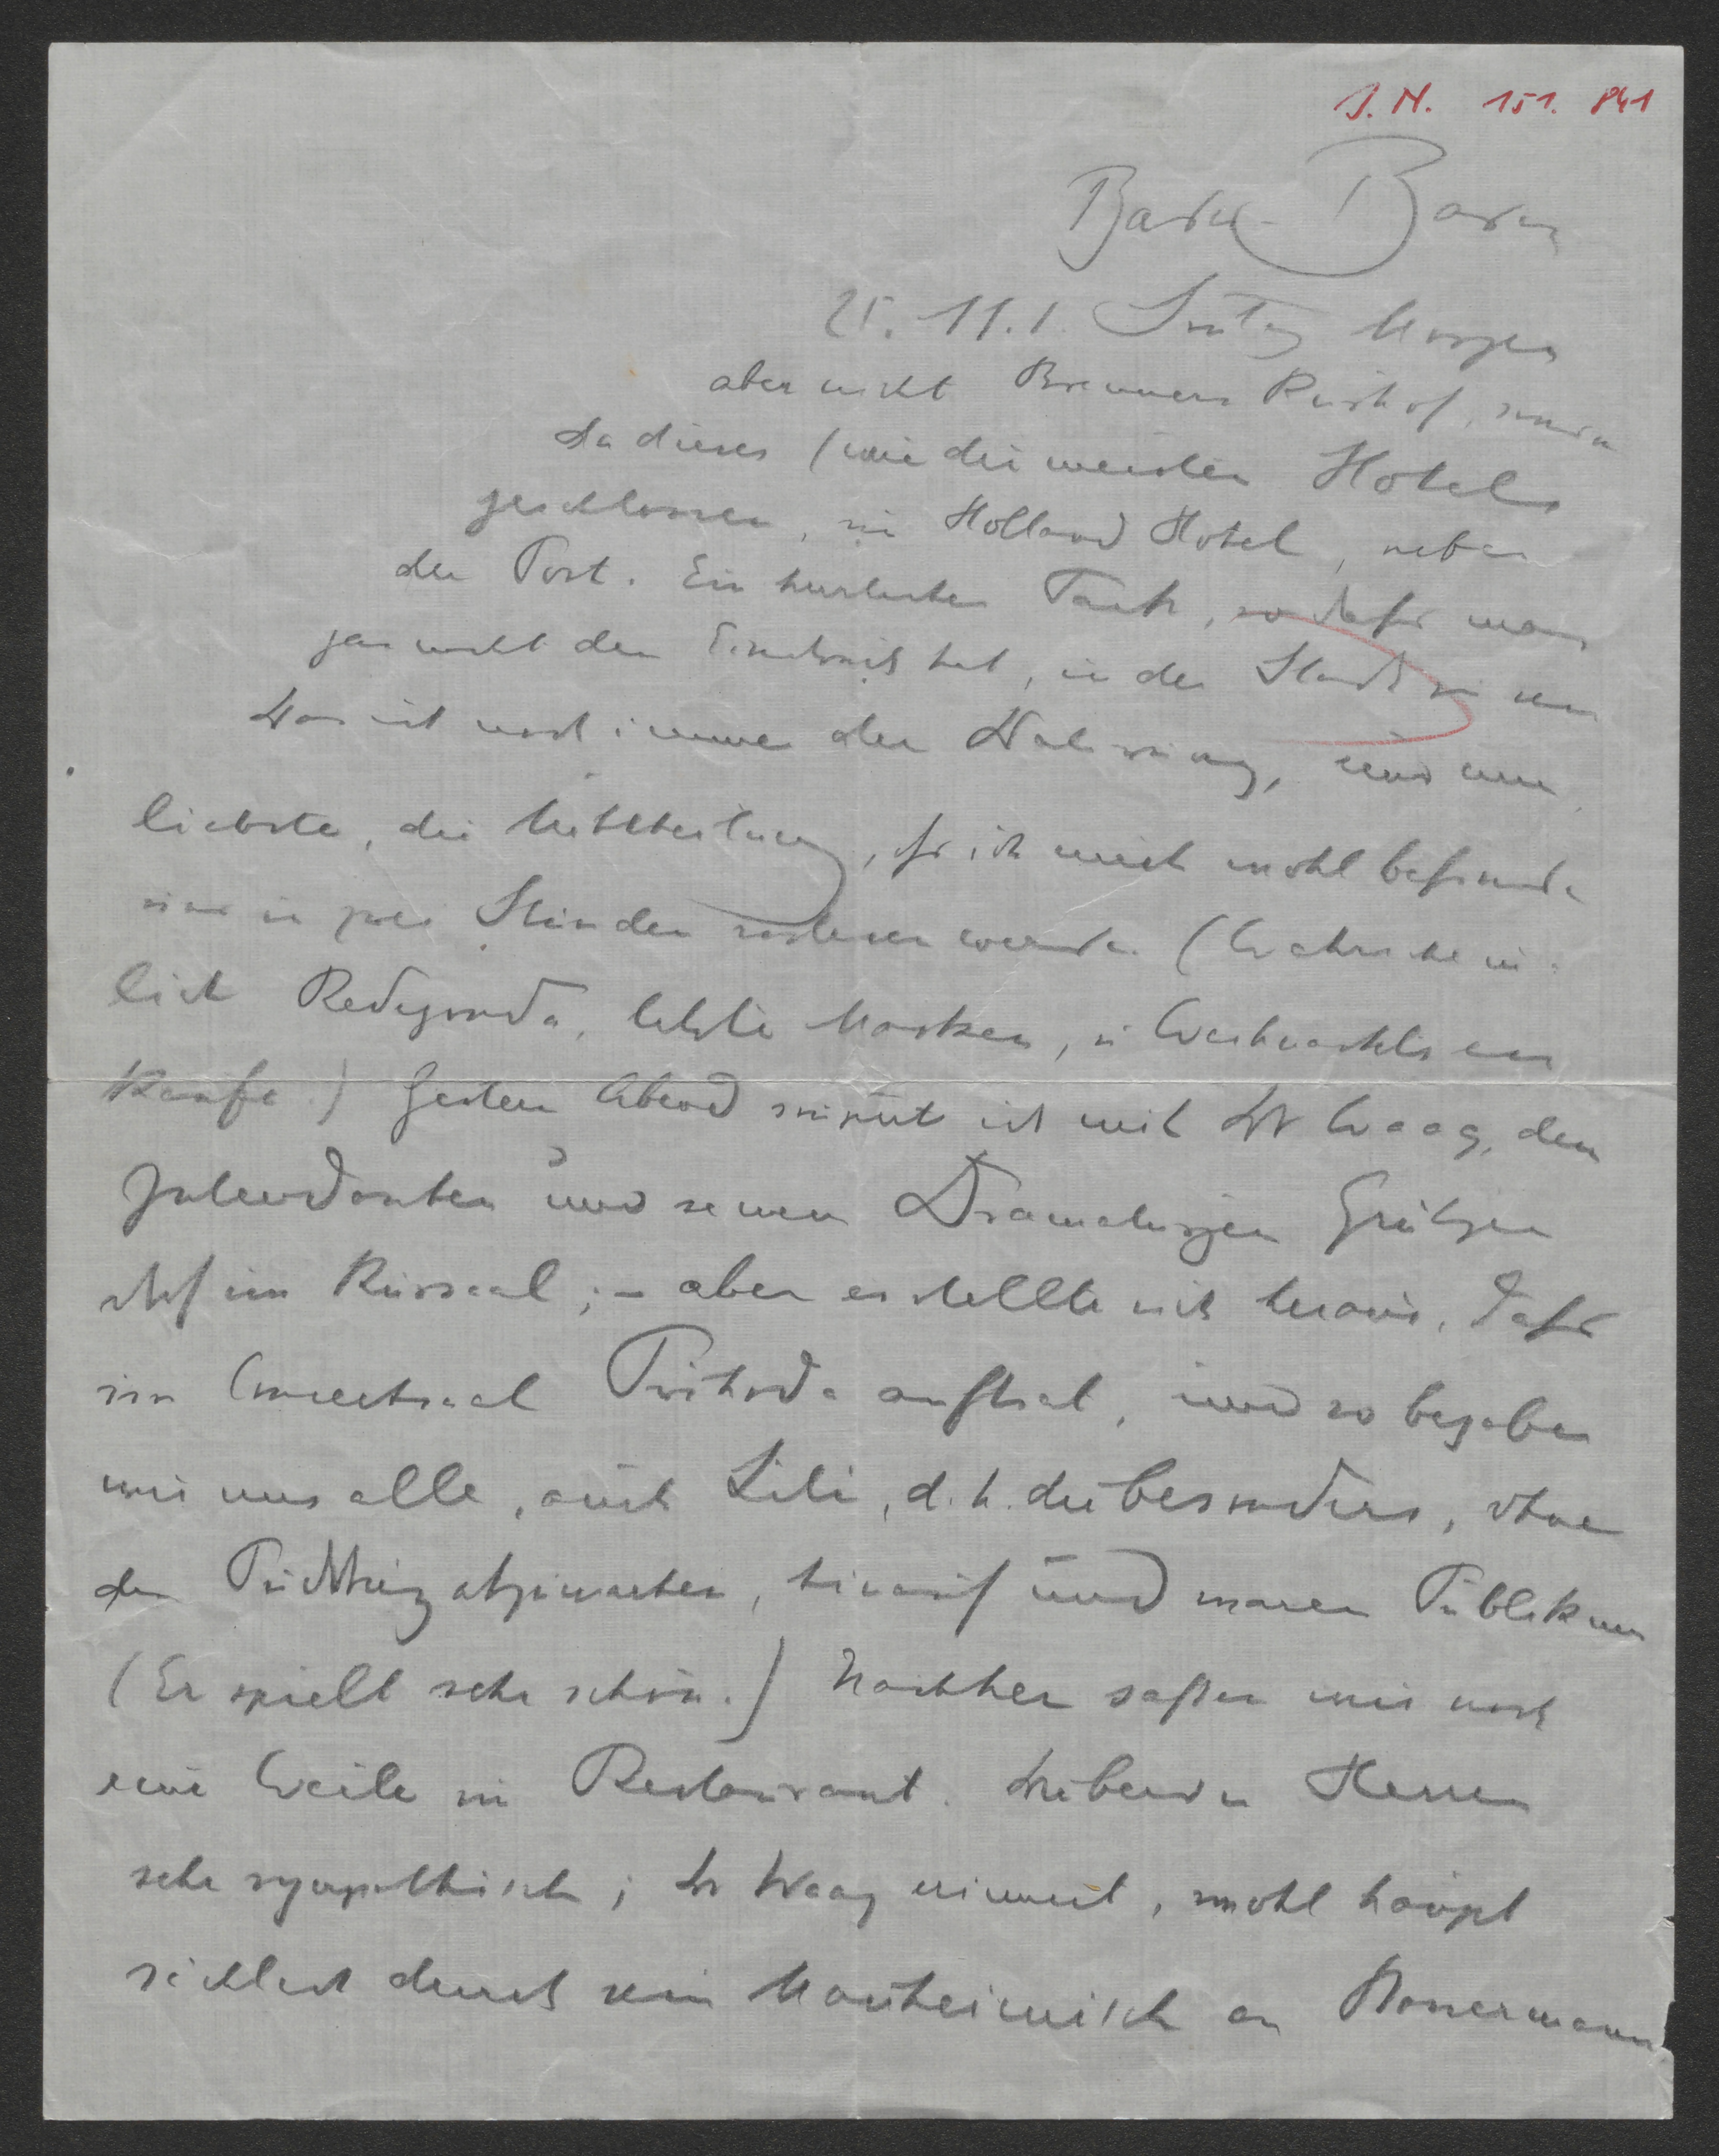 I.N. 151.841
Baden-Baden
25. 11. Sonntag Morgen
aber nicht Brenners Kurhof, sondern
da dieses (wie die meisten Hotels
geschlossen, im Holland Hotel, neben
der Post. Ein herrlicher Park, so dass man
gar nicht den Eindruck hat, in der Stadt zu sein
Das ist noch immer der Nebeneing, und nun
liebste, die Mittheilung, dss ich mich wohl befinde
und in zwei Stunden vorlesen werde. (Wahrschein-
lich Redegonda, letzte Masken, u Weihnachtsein
käufe.) Gestern Abend soupirt ich mit Dr Waag, dem
Intendanten und seinem Dramaturgen Grützen
dorf im Kursaal; – aber es stellte sich heraus, dass
im Concertsaal Prihoda auftrat, und so begaben
wir uns alle, auch Lili, d. h. die besonders, ohne
den Pudding abzuwarten, hinauf und waren Publikum
(Er spielt sehr schön.) Nachher saßen wir noch
eine Weile im Restaurant. Die beiden Herren
sehr sympathisch; Dr Waag erinnert, wohl haupt
sächlich durch sein Mannheimisch an Bassermann